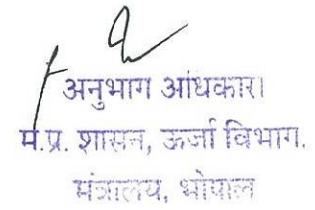 अनुभाग अधिकारी
म.प्र. शासन, ऊर्जा विभाग.
मंत्रालय, भोपाल